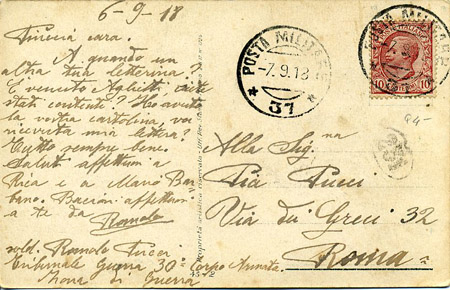 6-9-18
Pinuccia cara.
A quando un
altra tua letterina?
È venuto siete
stati contenti? Ho avuto
la vostra cartolina, voi
riceveste mia lettera?
Tutto sempre bene.
Saluti affettuosi a
Rica e a Mario Bar-
bano. Bacioni affettuosi
a te da Romolo
sold. Romolo Pucci
Tribunale Guerra 30° Corpo Armata.
Zona di Guerra
POSTA MILITARE
-7.9.18
* 37 *
POSTA MILITARE
10 10
Alla Sig.na
Pia Pucci
Via dei Greci 32
Roma
45-2